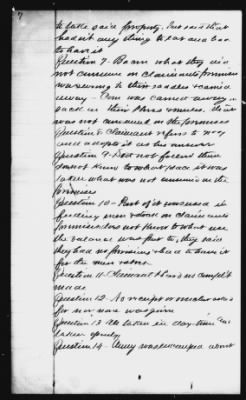 7
to take said property, but said that
hadn't any thing to eat and had
to have it
Question 7. Been what they did
not consume on claimants premises
was swung to their saddles & carried
away - Corn was carried away in
sack on their horses. It
was not consumed on the premises
Question 8. Claimant refers to no 7
and adopts it as his answer
Question 9. Does not know
does not know to what place it was
taken what was not consumed on the
premises
Question 10 - Part of it consumed in
feeding men & stock on claimants
premises does not know to what use
the balance was put to, they said
they had no provisions & had to have it
for the men & stock
Question 11 - Claimant No complaint
made
Question 12 - No receipt or voucher asked
for nor was given
Question 13 Was taken in day time
taken openly
Question 14 - Army was encamped about